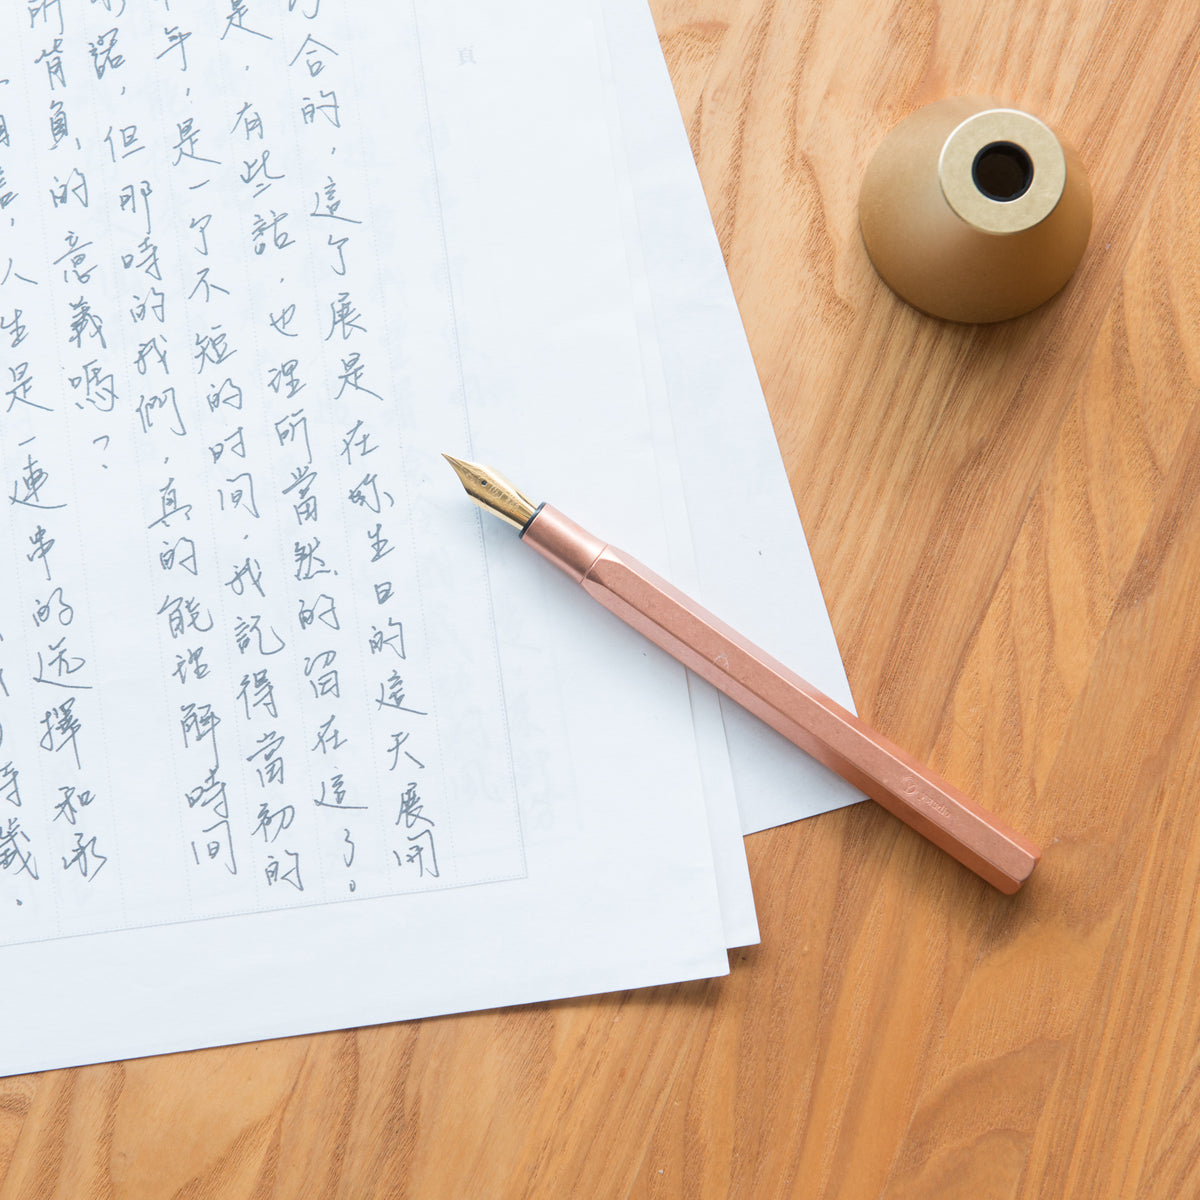 合的，這个展是在妳生日的這天展開
是，有些話，也理所當然的留在這了。
年，是一个不短的时间，我記得當初的
諾，但那時的我們，真的能理解時间
所背負的意義嗎？
人生是一連串的选擇和承
yaudio